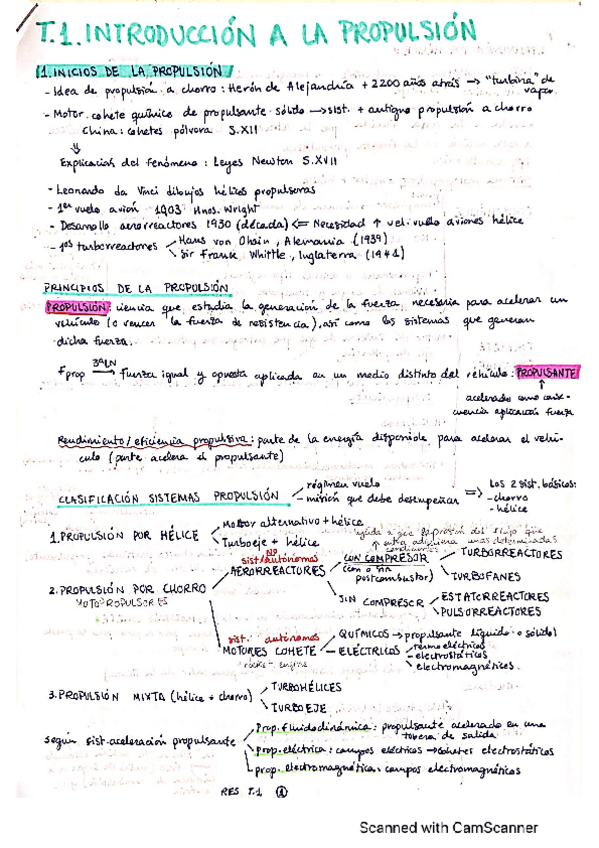 T.1. INTRODUCCIÓN A LA PROPULSIÓN
1. INICIOS DE LA PROPULSIÓN
- Idea de propulsión a chorro: Herón de Alejandría + 2200 años atrás → "turbina" de vapor.
- Motor cohete químico de propulsante sólido → sist. + antiguo propulsión a chorro
China: cohetes pólvora S.XII
⇓
Explicación del fenómeno: Leyes Newton S.XVII
- Leonardo da Vinci dibujos hélices propulsoras
- 1er vuelo avión 1903 Hnos. Wright
- Desarrollo aerorreactores 1930 (década) ⇐ Necesidad ↑ vel. vuelo aviones hélice
- 1os turborreactores
Hans von Ohain, Alemania (1939)
Sir Frank Whittle, Inglaterra (1941)
PRINCIPIOS DE LA PROPULSIÓN
PROPULSIÓN: ciencia que estudia la generación de la fuerza necesaria para acelerar un
vehículo (o vencer la fuerza de resistencia), así como los sistemas que generan
dicha fuerza.
Fprop 3ªLN → Fuerza igual y opuesta aplicada en un medio distinto del vehículo: PROPULSANTE
↑
acelerado como conse-
cuencia aplicación fuerza
Rendimiento/eficiencia propulsiva: parte de la energía disponible para acelerar el vehí-
culo (parte acelera el propulsante)
CLASIFICACIÓN SISTEMAS PROPULSIÓN
- régimen vuelo
- misión que debe desempeñar
⇒ Los 2 sist. básicos:
- chorro
- hélice
1. PROPULSIÓN POR HÉLICE
Motor alternativo + hélice
Turboeje + hélice
2. PROPULSIÓN POR CHORRO
MOTOPROPULSORES
sist. NO autónomos
AERORREACTORES
CON COMPRESOR
(con o sin
postcombustor)
TURBORREACTORES
TURBOFANES
SIN COMPRESOR
ESTATORREACTORES
PULSORREACTORES
sist. autónomos
MOTORES COHETE
rocket engine
QUÍMICOS → propulsante líquido o sólido
ELÉCTRICOS
- termoeléctricos
- electrostáticos
- electromagnéticos.
3. PROPULSIÓN MIXTA (hélice + chorro)
TURBOHÉLICES
TURBOEJE
según sist. aceleración propulsante
Prop. fluidodinámica: propulsante acelerado en una
tobera de salida
prop. eléctrica: campos eléctricos → cohetes electrostáticos
prop. electromagnética: campos electromagnéticos
RES T.1 1
Scanned with CamScanner